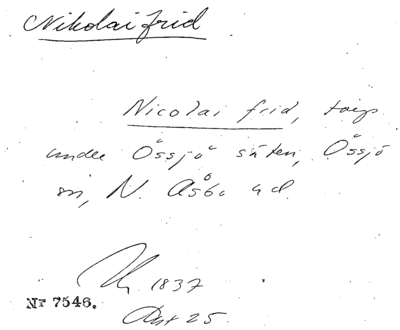 Nikolai frid
Nicolai frid, torp
under Össjö säteri, Össjö
sn, N. Åsbo hd.
1837
Nr 7546.
25.